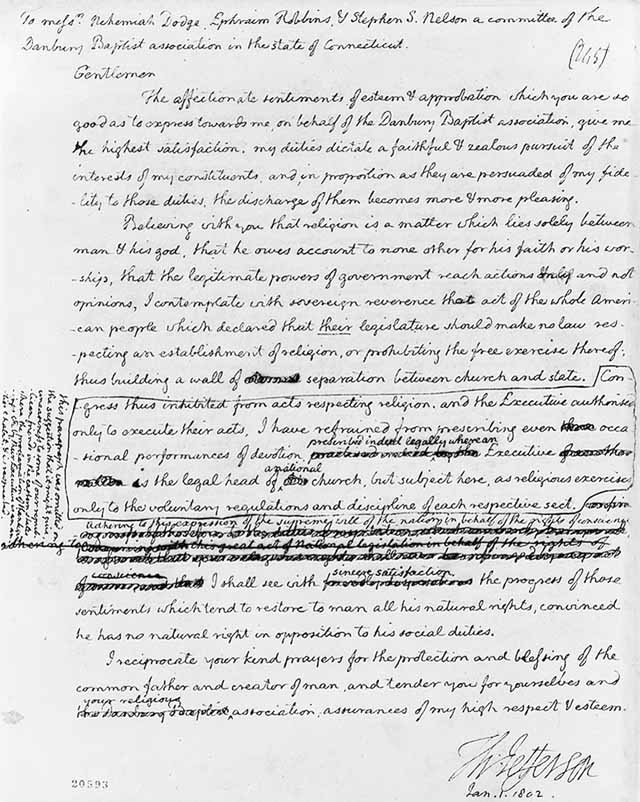 To mess.rs Nehemiah Dodge, Ephraim Robbins, & Stephen S. Nelson a committee of the
Danbury Baptist association in the state of Connecticut.
(245)
Gentlemen
The affectionate sentiments of esteem & approbation which you are so
good as to express towards me, on behalf of the Danbury Baptist association, give me
the highest satisfaction. my duties dictate a faithful & zealous pursuit of the
interests of my constituents, and, in proportion as they are persuaded of my fide-
-lity to those duties, the discharge of them becomes more & more pleasing.
Believing with you that religion is a matter which lies solely between
man & his god, that he owes account to none other for his faith or his wor-
-ship, that the legitimate powers of government reach actions only and not
opinions, I contemplate with sovereign reverence that act of the whole Ameri-
-can people which declared that their legislature should make no law res-
-pecting an establishment of religion, or prohibiting the free exercise thereof;
thus building a wall of separation between church and state. Con-
-gress thus inhibited from acts respecting religion, and the Executive authorised
only to execute their acts, I have refrained from prescribing even occa
prescribed indeed legally where an
-sional performances of devotion, Executive
a national
is the legal head of church, but subject here, as religious exercises
only to the voluntary regulations and discipline of each respective sect.
Adhering to this expression of the supreme will of the nation in behalf of the rights of conscience
conscience
sincere satisfaction
I shall see with the progress of those
sentiments which tend to restore to man all his natural rights, convinced
he has no natural right in opposition to his social duties.
I reciprocate your kind prayers for the protection and blessing of the
common father and creator of man, and tender you for yourselves and
your religious
the Danbury Baptist association, assurances of my high respect & esteem.
Th: Jefferson
Jan. 1. 1802.
20593
this paragraph was omitted on
the suggestion that it might give